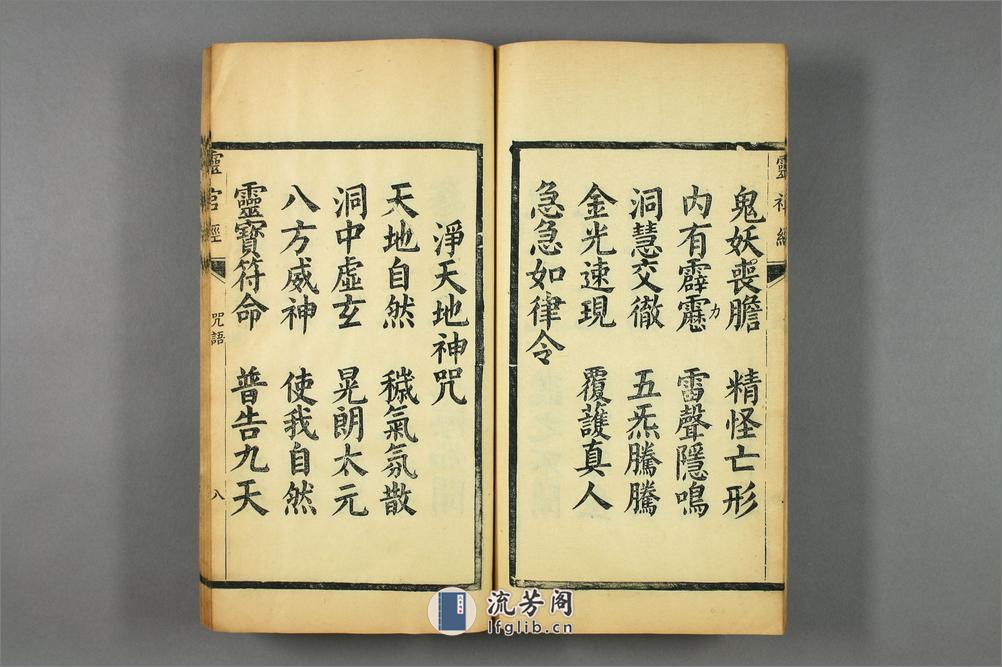 鬼妖喪膽　精怪亡形
內有霹靂　雷聲隱鳴
力
洞慧交徹　五炁騰騰
金光速現　覆護真人
急急如律令
淨天地神咒
天地自然　穢氣氛散
洞中虛玄　晃朗太元
八方威神　使我自然
靈寶符命　普告九天
靈官經
咒語
八
流芳阁
lfglib.cn